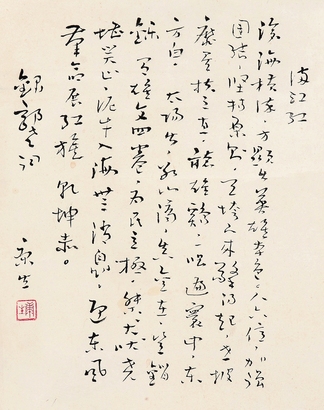 满江红
沧海横流，方显出英雄本色。人六亿，加强
团结，坚持原则，天垮下来擎得起，世披
靡矣扶之直，听雄鸡一唱遍寰中，东
方白。太阳出，冰山滴，真金在，岂销
铄，有雄文四卷，为民立极，桀犬吠尧
堪笑止，泥牛入海无消息，迎东风
革命展红旗，乾坤赤。
録郭老词
康生